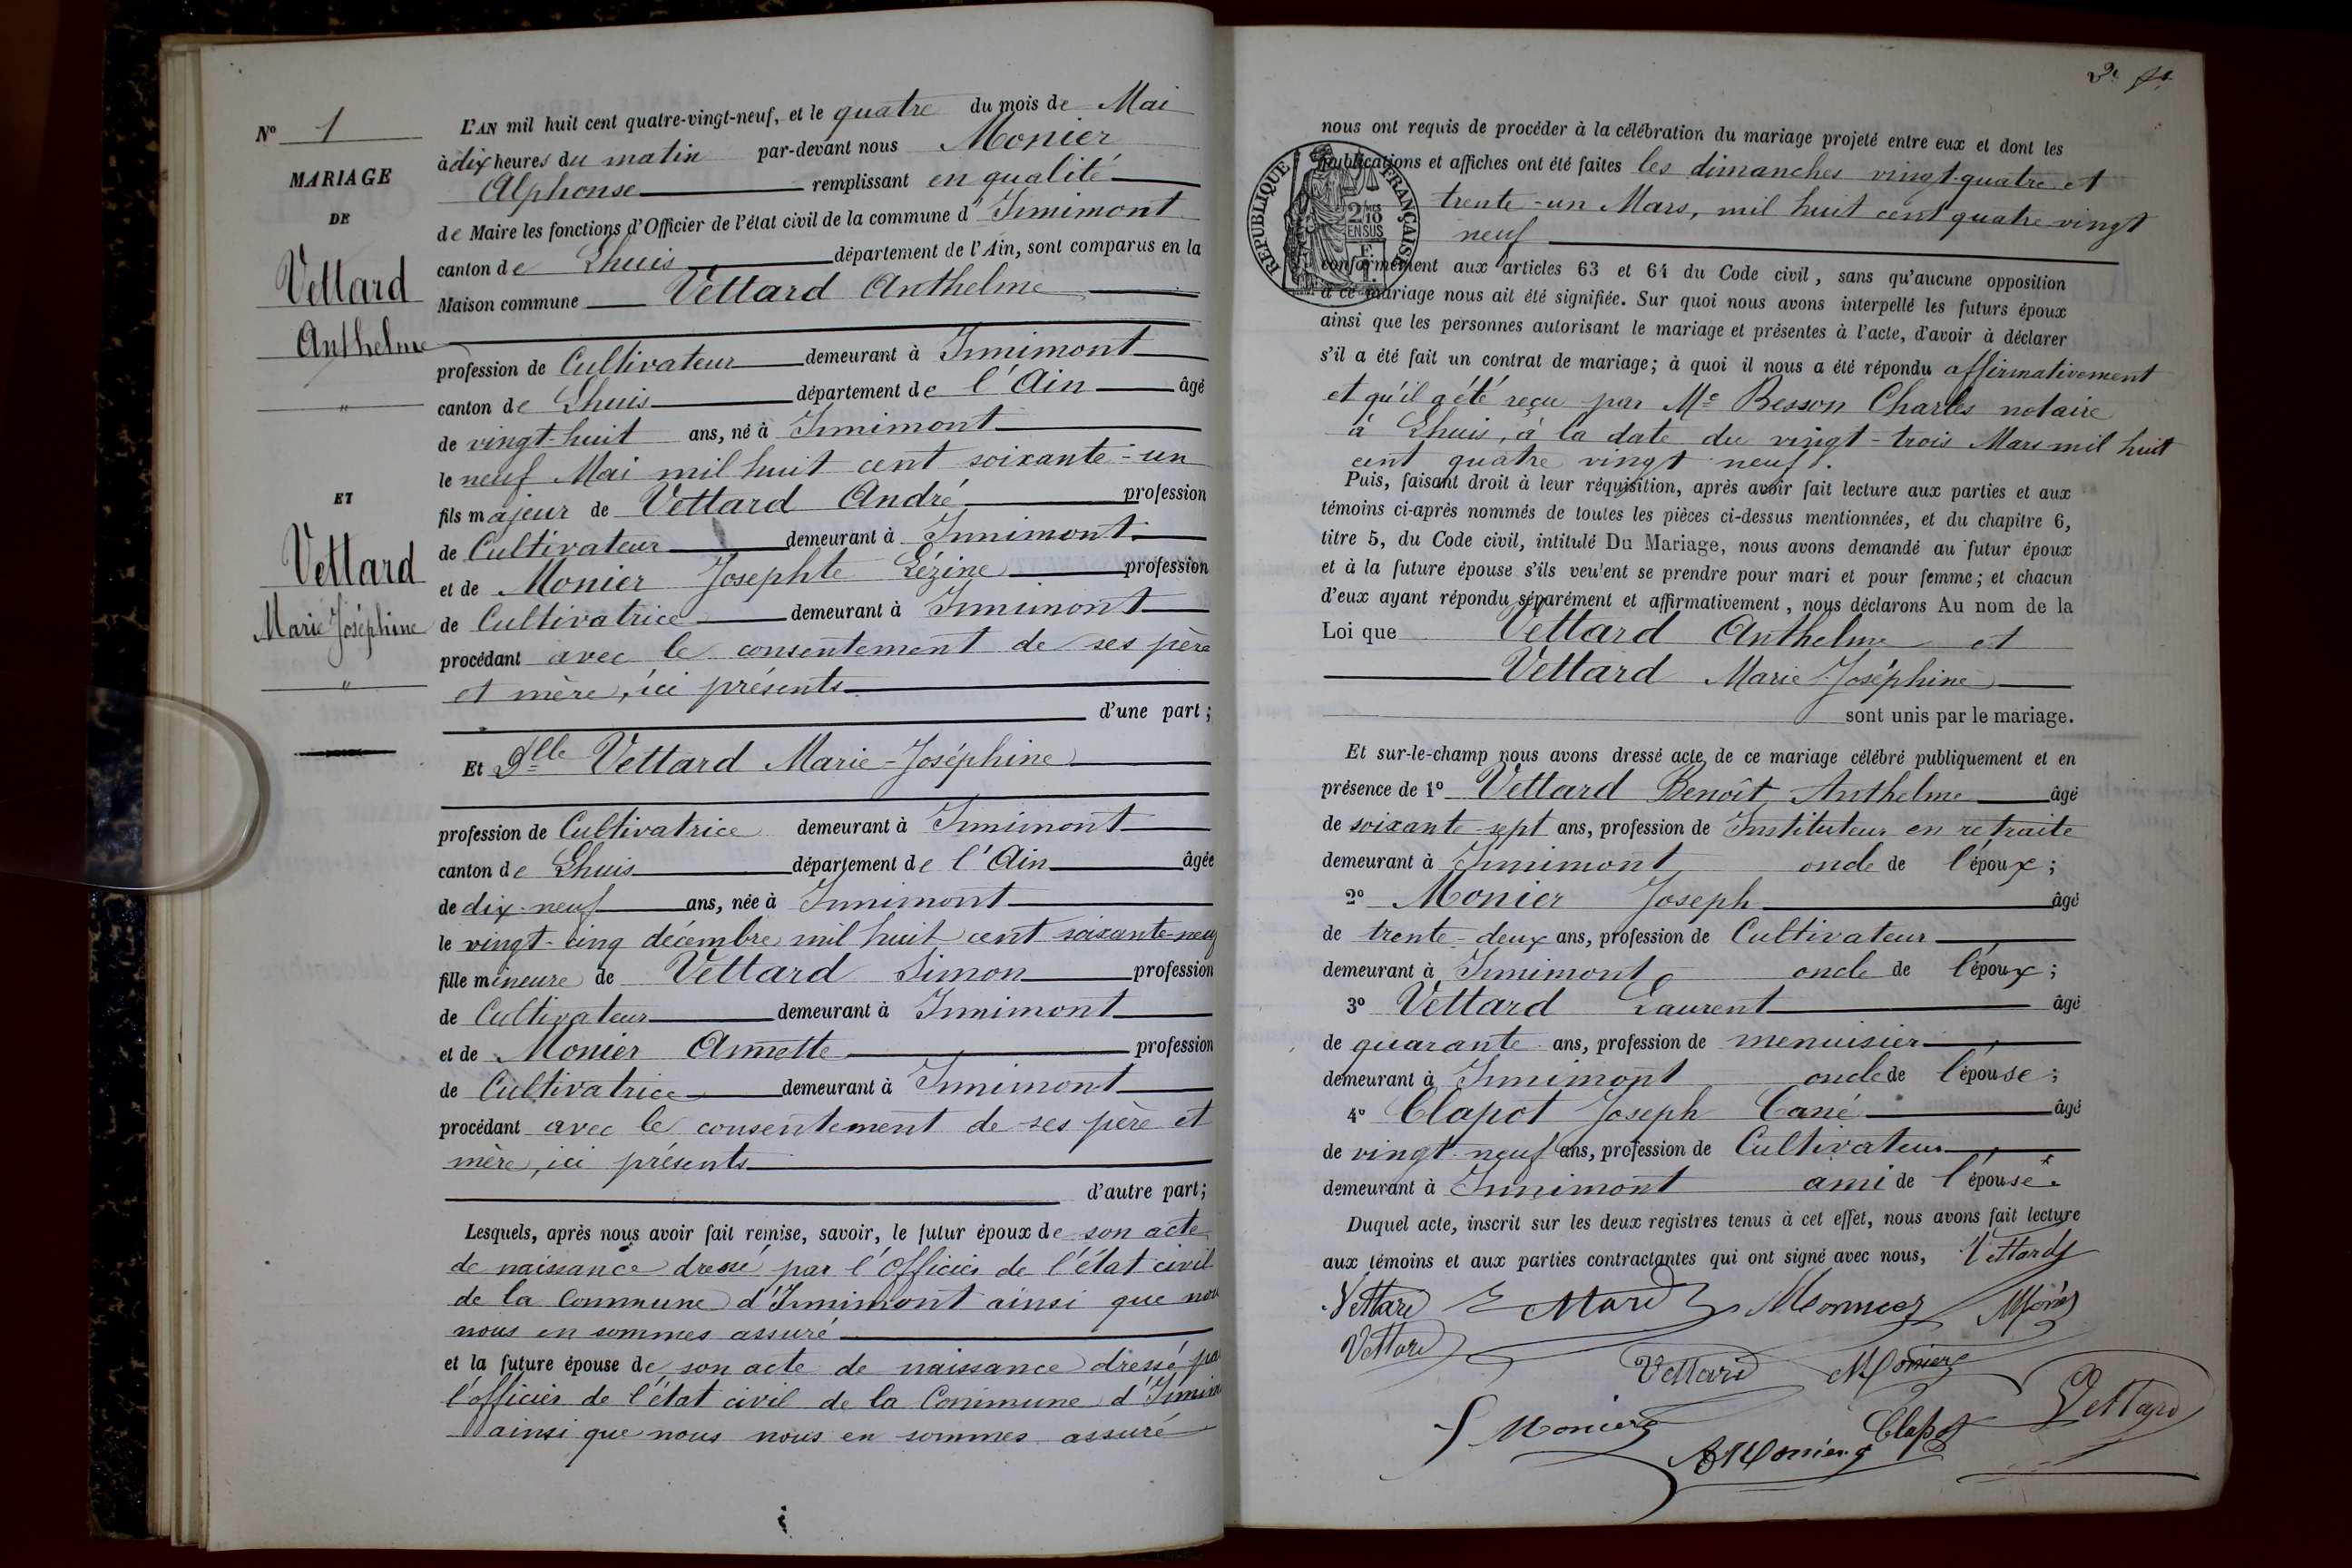 N° 1
MARIAGE
DE
Vettard
Anthelme
"
ET
Vettard
Marie Joséphine
"
L'AN mil huit cent quatre-vingt-neuf, et le quatre du mois de Mai
à dix heures du matin par-devant nous Monier
Alphonse remplissant en qualité
de Maire les fonctions d'Officier de l'état civil de la commune d'Innimont
canton de Lhuis département de l'Ain, sont comparus en la
Maison commune Vettard Anthelme
profession de Cultivateur demeurant à Innimont
canton de Lhuis département de l'Ain âgé
de vingt-huit ans, né à Innimont
le neuf Mai mil huit cent soixante-un
fils majeur de Vettard André profession
de Cultivateur demeurant à Innimont
et de Monier Josephte Lézine profession
de Cultivatrice demeurant à Innimont
procédant avec le consentement de ses père
et mère, ici présents
d'une part;
Et Dlle Vettard Marie-Joséphine
profession de Cultivatrice demeurant à Innimont
canton de Lhuis département de l'Ain âgée
de dix-neuf ans, née à Innimont
le vingt-cinq décembre mil huit cent soixante-neuf
fille mineure de Vettard Simon profession
de Cultivateur demeurant à Innimont
et de Monier Annette profession
de Cultivatrice demeurant à Innimont
procédant avec le consentement de ses père et
mère, ici présents
d'autre part;
Lesquels, après nous avoir fait remise, savoir, le futur époux de son acte
de naissance dressé par l'Officier de l'état civil
de la Commune d'Innimont ainsi que nous
nous en sommes assuré
et la future épouse de son acte de naissance dressé par
l'officier de l'état civil de la Commune d'Innimont
ainsi que nous nous en sommes assuré
nous ont requis de procéder à la célébration du mariage projeté entre eux et dont les
publications et affiches ont été faites les dimanches vingt-quatre et
trente-un Mars, mil huit cent quatre vingt
neuf
RÉPUBLIQUE FRANÇAISE
2/10
EN SUS
conformément aux articles 63 et 64 du Code civil, sans qu'aucune opposition
à ce mariage nous ait été signifiée. Sur quoi nous avons interpellé les futurs époux
ainsi que les personnes autorisant le mariage et présentes à l'acte, d'avoir à déclarer
s'il a été fait un contrat de mariage; à quoi il nous a été répondu affirmativement
et qu'il a été reçu par Me Besson Charles notaire
à Lhuis, à la date du vingt-trois Mars mil huit
cent quatre vingt neuf.
Puis, faisant droit à leur réquisition, après avoir fait lecture aux parties et aux
témoins ci-après nommés de toutes les pièces ci-dessus mentionnées, et du chapitre 6,
titre 5, du Code civil, intitulé Du Mariage, nous avons demandé au futur époux
et à la future épouse s'ils veulent se prendre pour mari et pour femme; et chacun
d'eux ayant répondu séparément et affirmativement, nous déclarons Au nom de la
Loi que Vettard Anthelme et
Vettard Marie-Joséphine
sont unis par le mariage.
Et sur-le-champ nous avons dressé acte de ce mariage célébré publiquement et en
présence de 1° Vettard Benoît Anthelme âgé
de soixante-sept ans, profession de Instituteur en retraite
demeurant à Innimont oncle de l'époux;
2° Monier Joseph âgé
de trente-deux ans, profession de Cultivateur
demeurant à Innimont oncle de l'époux;
3° Vettard Laurent âgé
de quarante ans, profession de menuisier
demeurant à Innimont oncle de l'épouse;
4° Clapot Joseph Cané âgé
de vingt-neuf ans, profession de Cultivateur
demeurant à Innimont ami de l'épouse.
Duquel acte, inscrit sur les deux registres tenus à cet effet, nous avons fait lecture
aux témoins et aux parties contractantes qui ont signé avec nous, Vettard
Vettard Monnier Monier
Vettard
Vettard Monier
Monier Clapot Vettard
A Monier